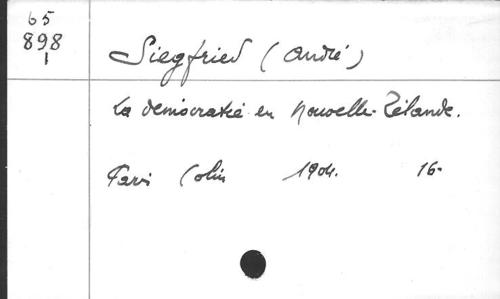 65
898
1
Siegfried (André)
La démocratie en Nouvelle-Zélande.
Paris Colin 1904. 16-